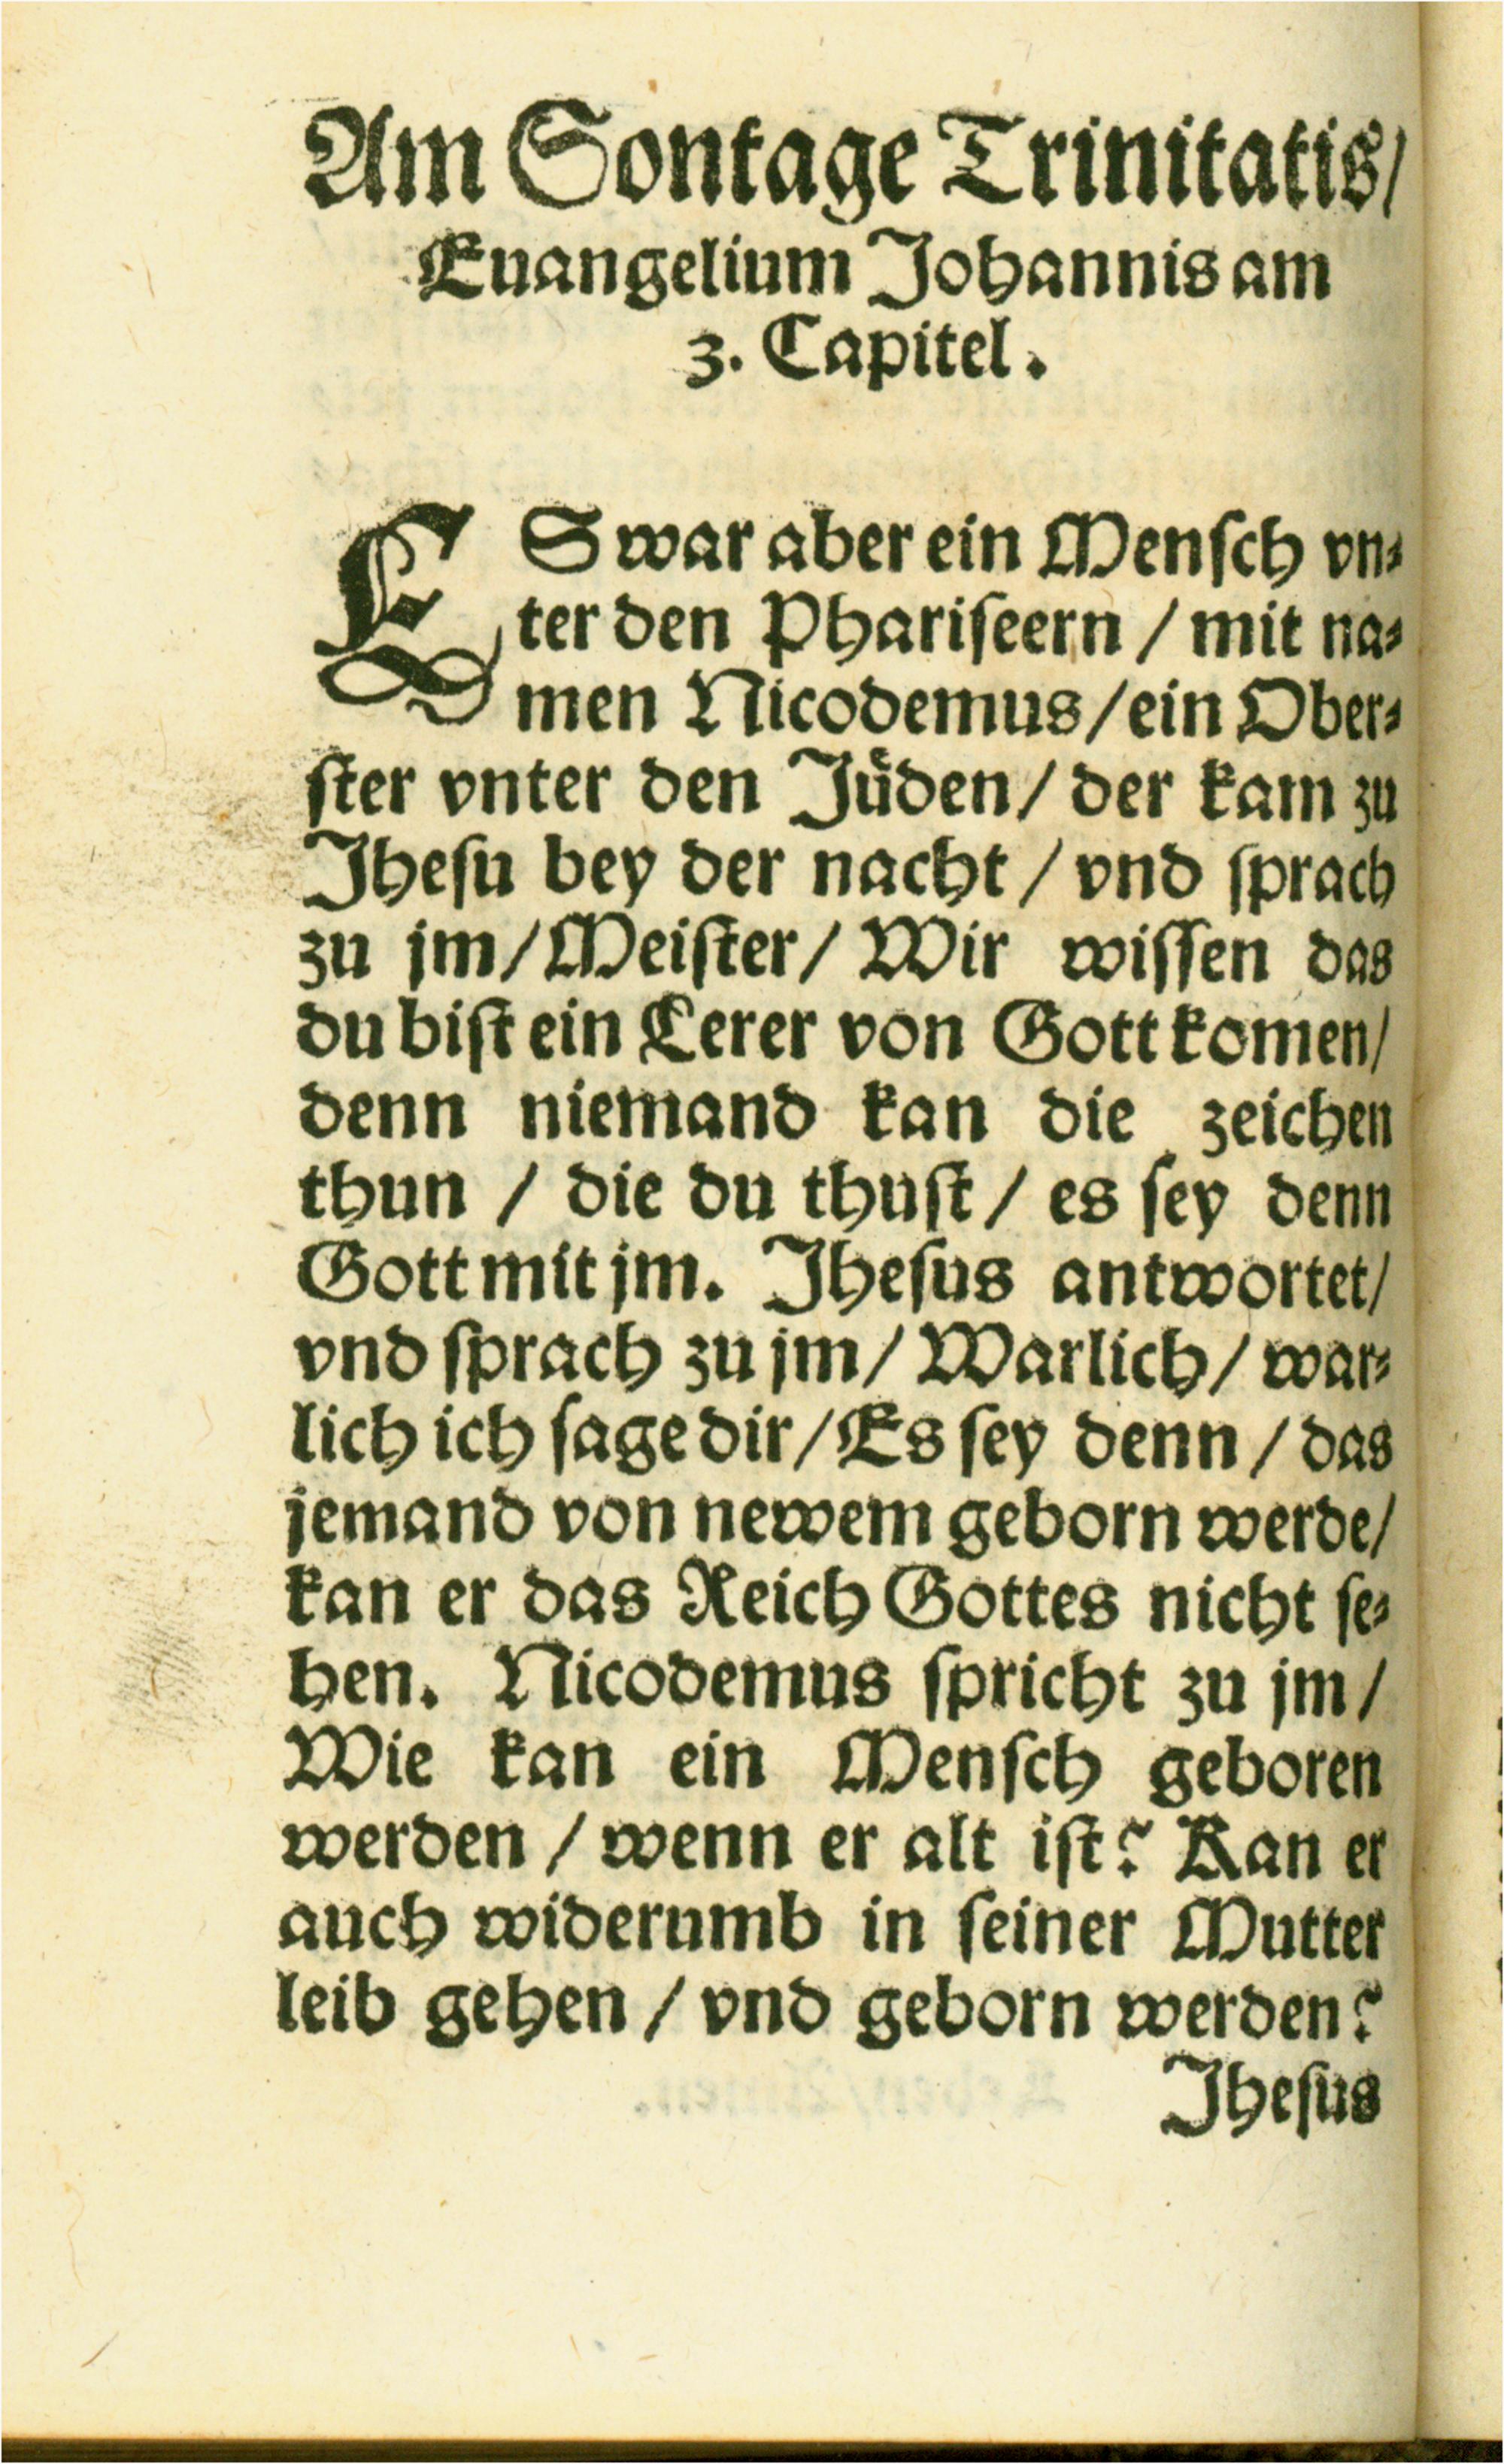 Am Sontage Trinitatis/
Euangelium Johannis am
3. Capitel.
ES war aber ein Menſch vn⸗
ter den Phariſeern / mit na⸗
men Nicodemus / ein Ober⸗
ſter vnter den Jüden / der kam zu
Jheſu bey der nacht / vnd ſprach
zu jm / Meiſter / Wir wiſſen das
du biſt ein Lerer von Gott komen /
denn niemand kan die zeichen
thun / die du thuſt / es ſey denn
Gott mit jm. Jheſus antwortet /
vnd ſprach zu jm / Warlich / war⸗
lich ich ſage dir / Es ſey denn / das
jemand von newem geborn werde /
kan er das Reich Gottes nicht ſe⸗
hen. Nicodemus ſpricht zu jm /
Wie kan ein Menſch geboren
werden / wenn er alt iſt? Kan er
auch widerumb in ſeiner Mutter
leib gehen / vnd geborn werden?
Jheſus